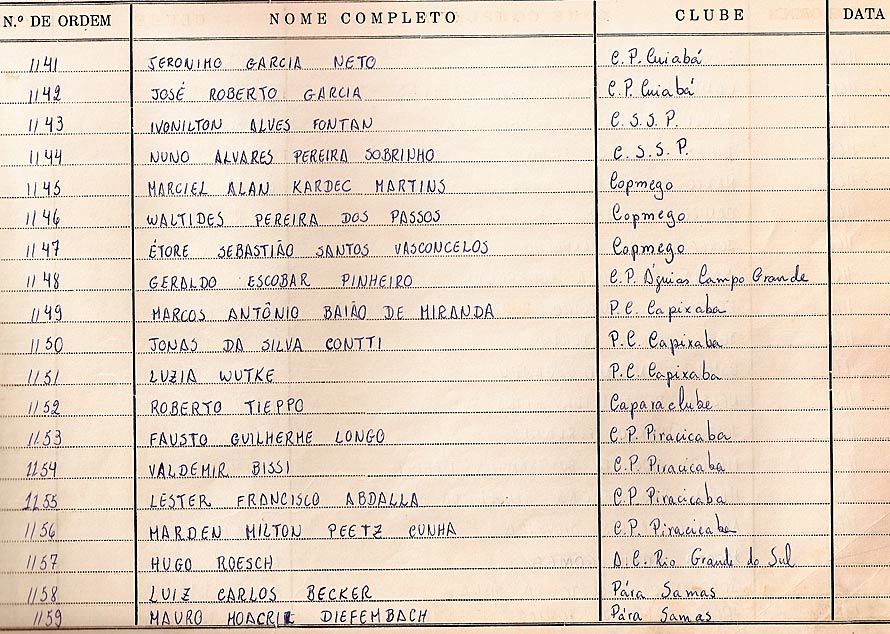 N.º DE ORDEM NOME COMPLETO CLUBE DATA
1141 JERONIMO GARCIA NETO C.P. Cuiabá
1142 JOSÉ ROBERTO GARCIA C.P. Cuiabá
1143 IVONILTON ALVES FONTAN C.S.S.P.
1144 NUNO ALVARES PEREIRA SOBRINHO C.S.S.P.
1145 MARCIEL ALAN KARDEC MARTINS Copmego
1146 WALTIDES PEREIRA DOS PASSOS Copmego
1147 ÉTORE SEBASTIÃO SANTOS VASCONCELOS Copmego
1148 GERALDO ESCOBAR PINHEIRO C.P. Águias Campo Grande
1149 MARCOS ANTÔNIO BAIÃO DE MIRANDA P.C. Capixaba
1150 JONAS DA SILVA CONTTI P.C. Capixaba
1151 LUZIA WUTKE P.C. Capixaba
1152 ROBERTO TIEPPO Caparaclube
1153 FAUSTO GUILHERME LONGO C.P. Piracicaba
1154 VALDEMIR BISSI C.P. Piracicaba
1155 LESTER FRANCISCO ABDALLA C.P Piracicaba
1156 MARDEN MILTON PEETZ CUNHA C.P. Piracicaba
1157 HUGO ROESCH A.C. Rio Grande do Sul
1158 LUIZ CARLOS BECKER Pára Samas
1159 MAURO DIEFEMBACH Pára Samas